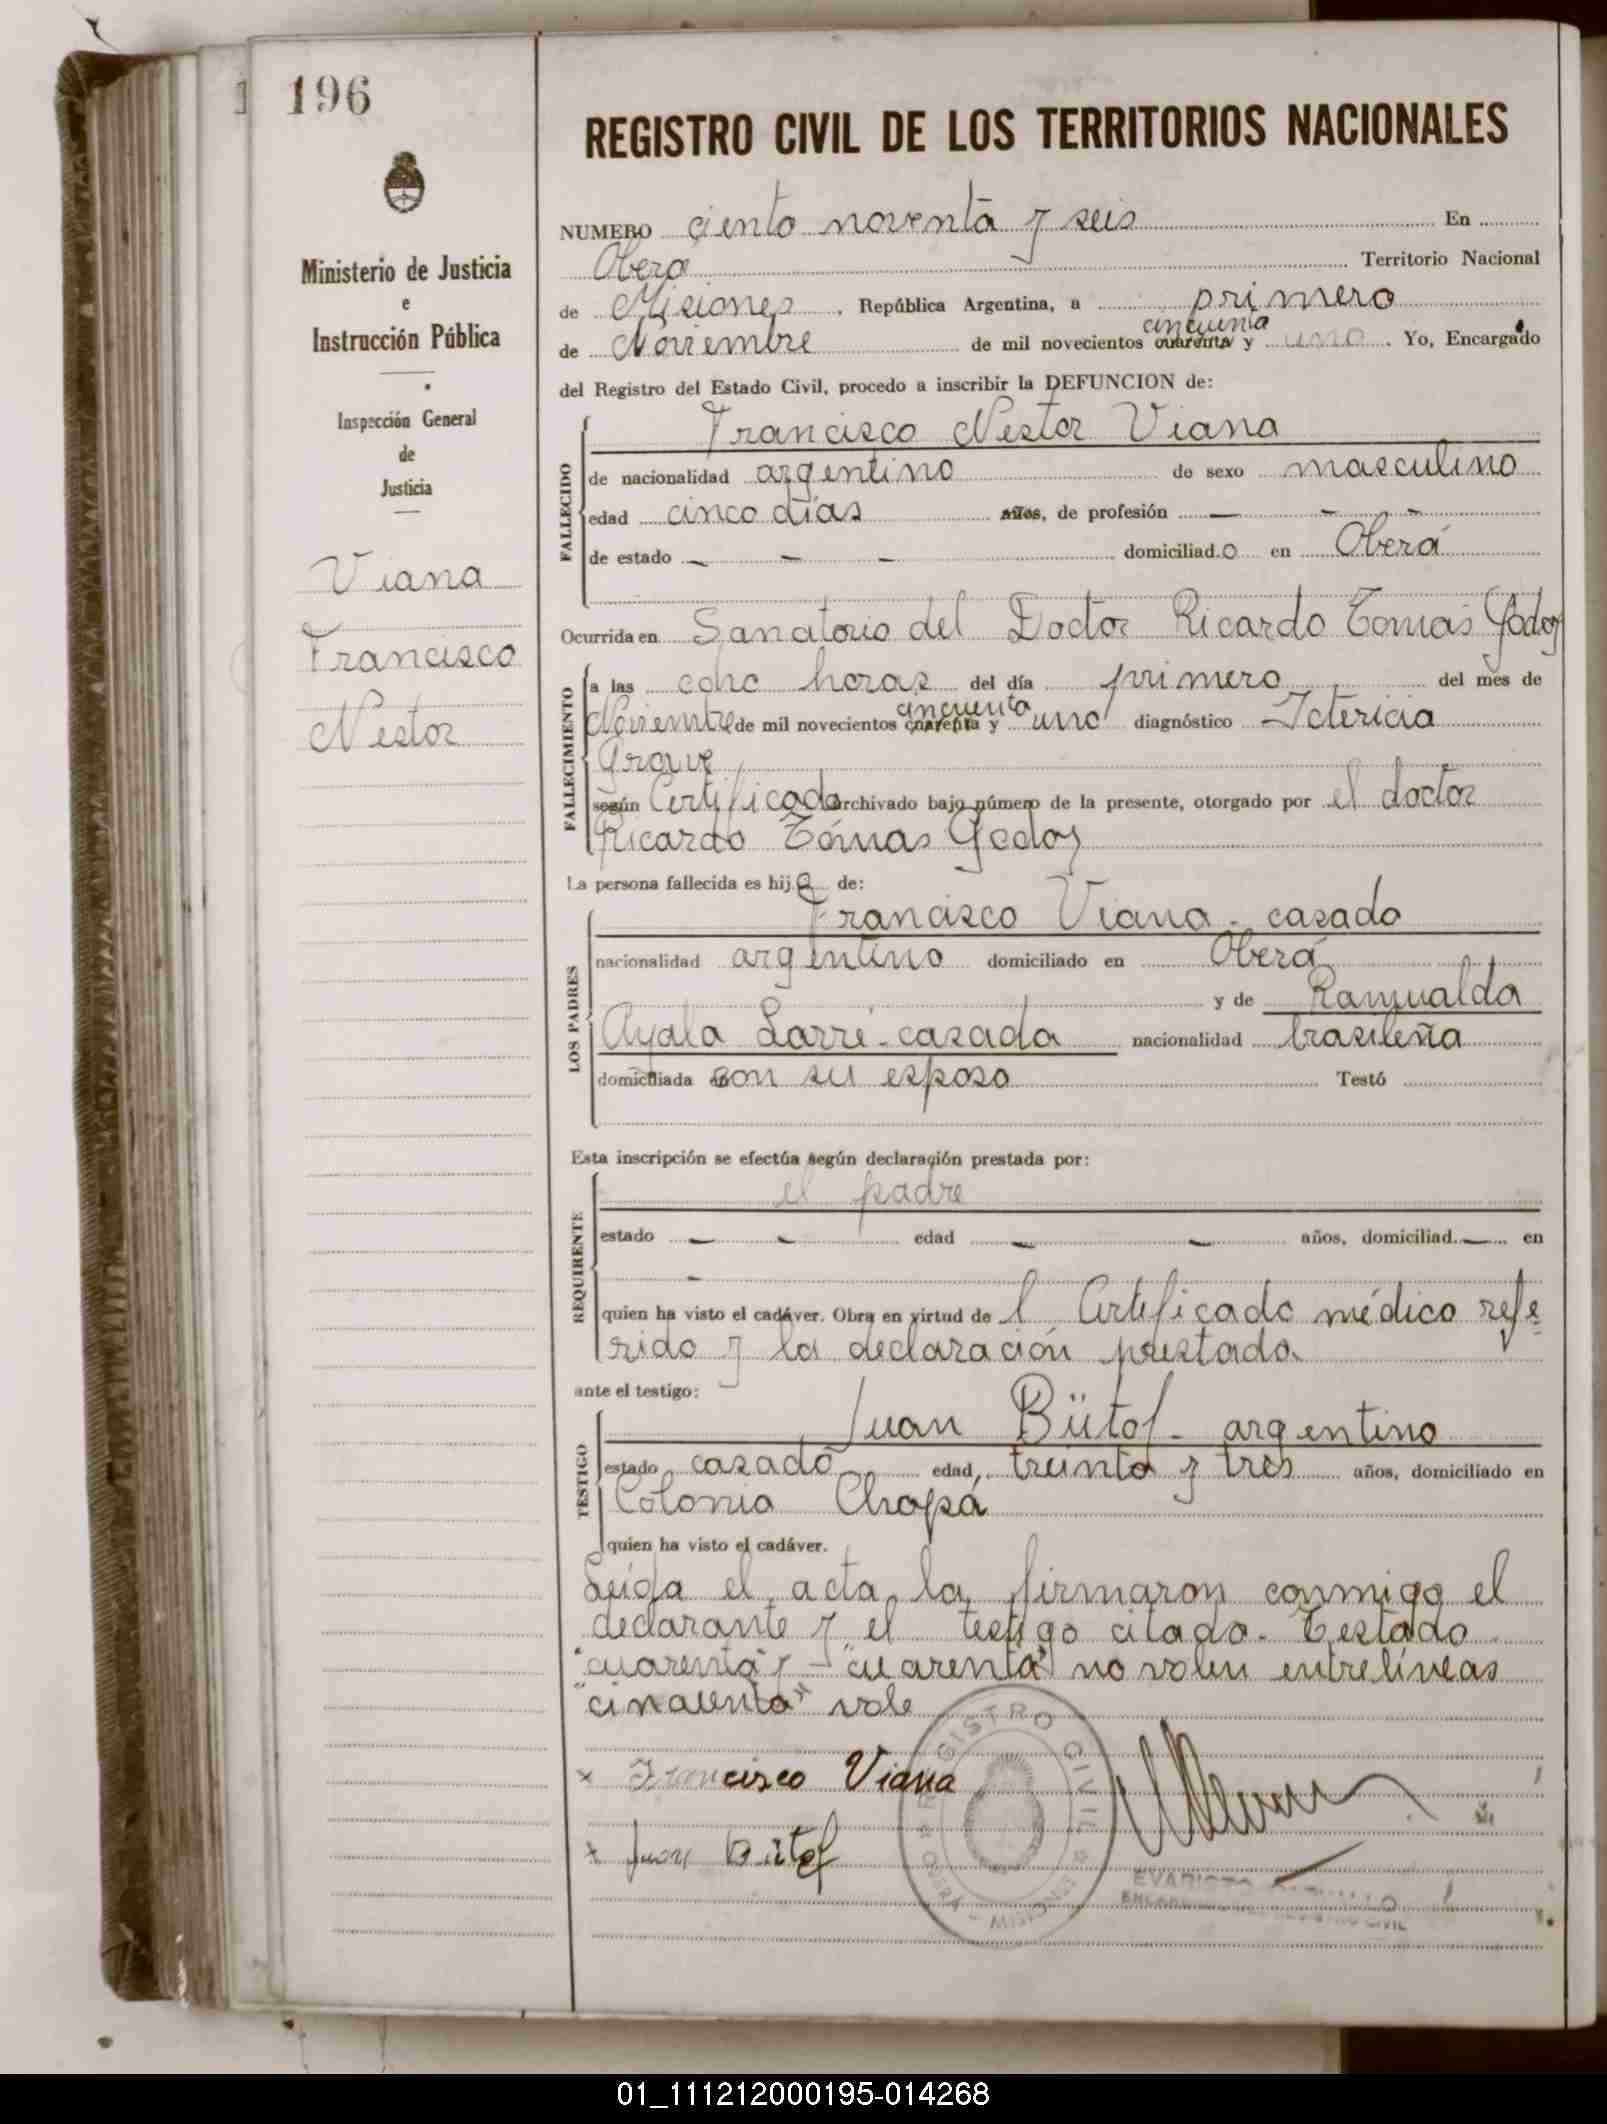 196
Ministerio de Justicia
e
Instrucción Pública
Inspección General
de
Justicia
Viana
Francisco
Nestor
REGISTRO CIVIL DE LOS TERRITORIOS NACIONALES
NUMERO ciento noventa y seis En
Oberá Territorio Nacional
de Misiones, República Argentina, a primero
cincuenta
de Noviembre de mil novecientos cuarenta y uno. Yo, Encargado
del Registro del Estado Civil, procedo a inscribir la DEFUNCION de:
FALLECIDO
Francisco Nestor Viana
de nacionalidad argentino de sexo masculino
edad cinco días años, de profesión — - -
de estado - - - domiciliado en Oberá
Ocurrida en Sanatorio del Doctor Ricardo Tomás Godoy
FALLECIMIENTO
a las ocho horas del día primero del mes de
cincuenta
Noviembre de mil novecientos cuarenta y uno diagnóstico Ictericia
Grave
según Certificado archivado bajo número de la presente, otorgado por el doctor
Ricardo Tomas Godoy
La persona fallecida es hijo de:
LOS PADRES
Francisco Viana - casado
nacionalidad argentino domiciliado en Oberá
y de Ramualda
Ayala Larré - casada nacionalidad brasileña
domiciliada en con su esposo Testó
Esta inscripción se efectúa según declaración prestada por:
REQUIRENTE
el padre
estado - - edad - - años, domiciliad — en
-
quien ha visto el cadáver. Obra en virtud de l Certificado médico refe
rido y la declaración prestada
ante el testigo:
TESTIGO
Juan Bütof - argentino
estado casado edad, treinta y tres años, domiciliado en
Colonia Chapá
quien ha visto el cadáver.
Leída el acta la firmaron conmigo el
declarante y el testigo citado. Testado
"cuarenta" y "cuarenta" no valen entrelíneas
"cincuenta" vale
x Francisco Viana
x Juan Bütof
REGISTRO CIVIL
OBERÁ - MISIONES
EVARISTO
ENCARGADO DEL REGISTRO CIVIL
01_111212000195-014268